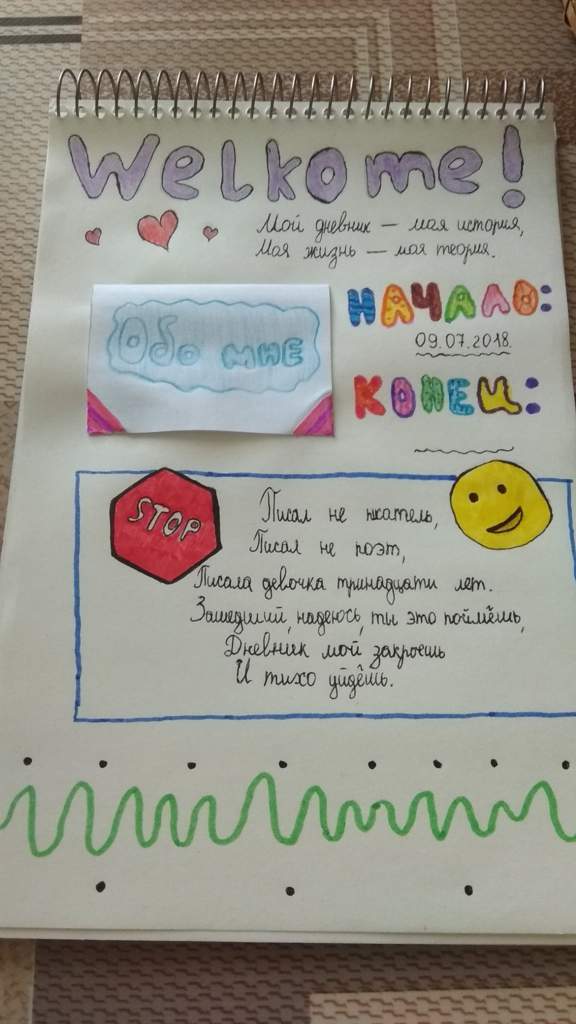 Welkome!
Мой дневник — моя история,
Моя жизнь — моя теория.
Обо мне
НАЧАЛО:
09.07.2018.
КОНЕЦ:
STOP
Писал не писатель,
Писал не поэт,
Писала девочка тринадцати лет.
Зашедший, надеюсь, ты это поймёшь,
Дневник мой закроешь
И тихо уйдёшь.